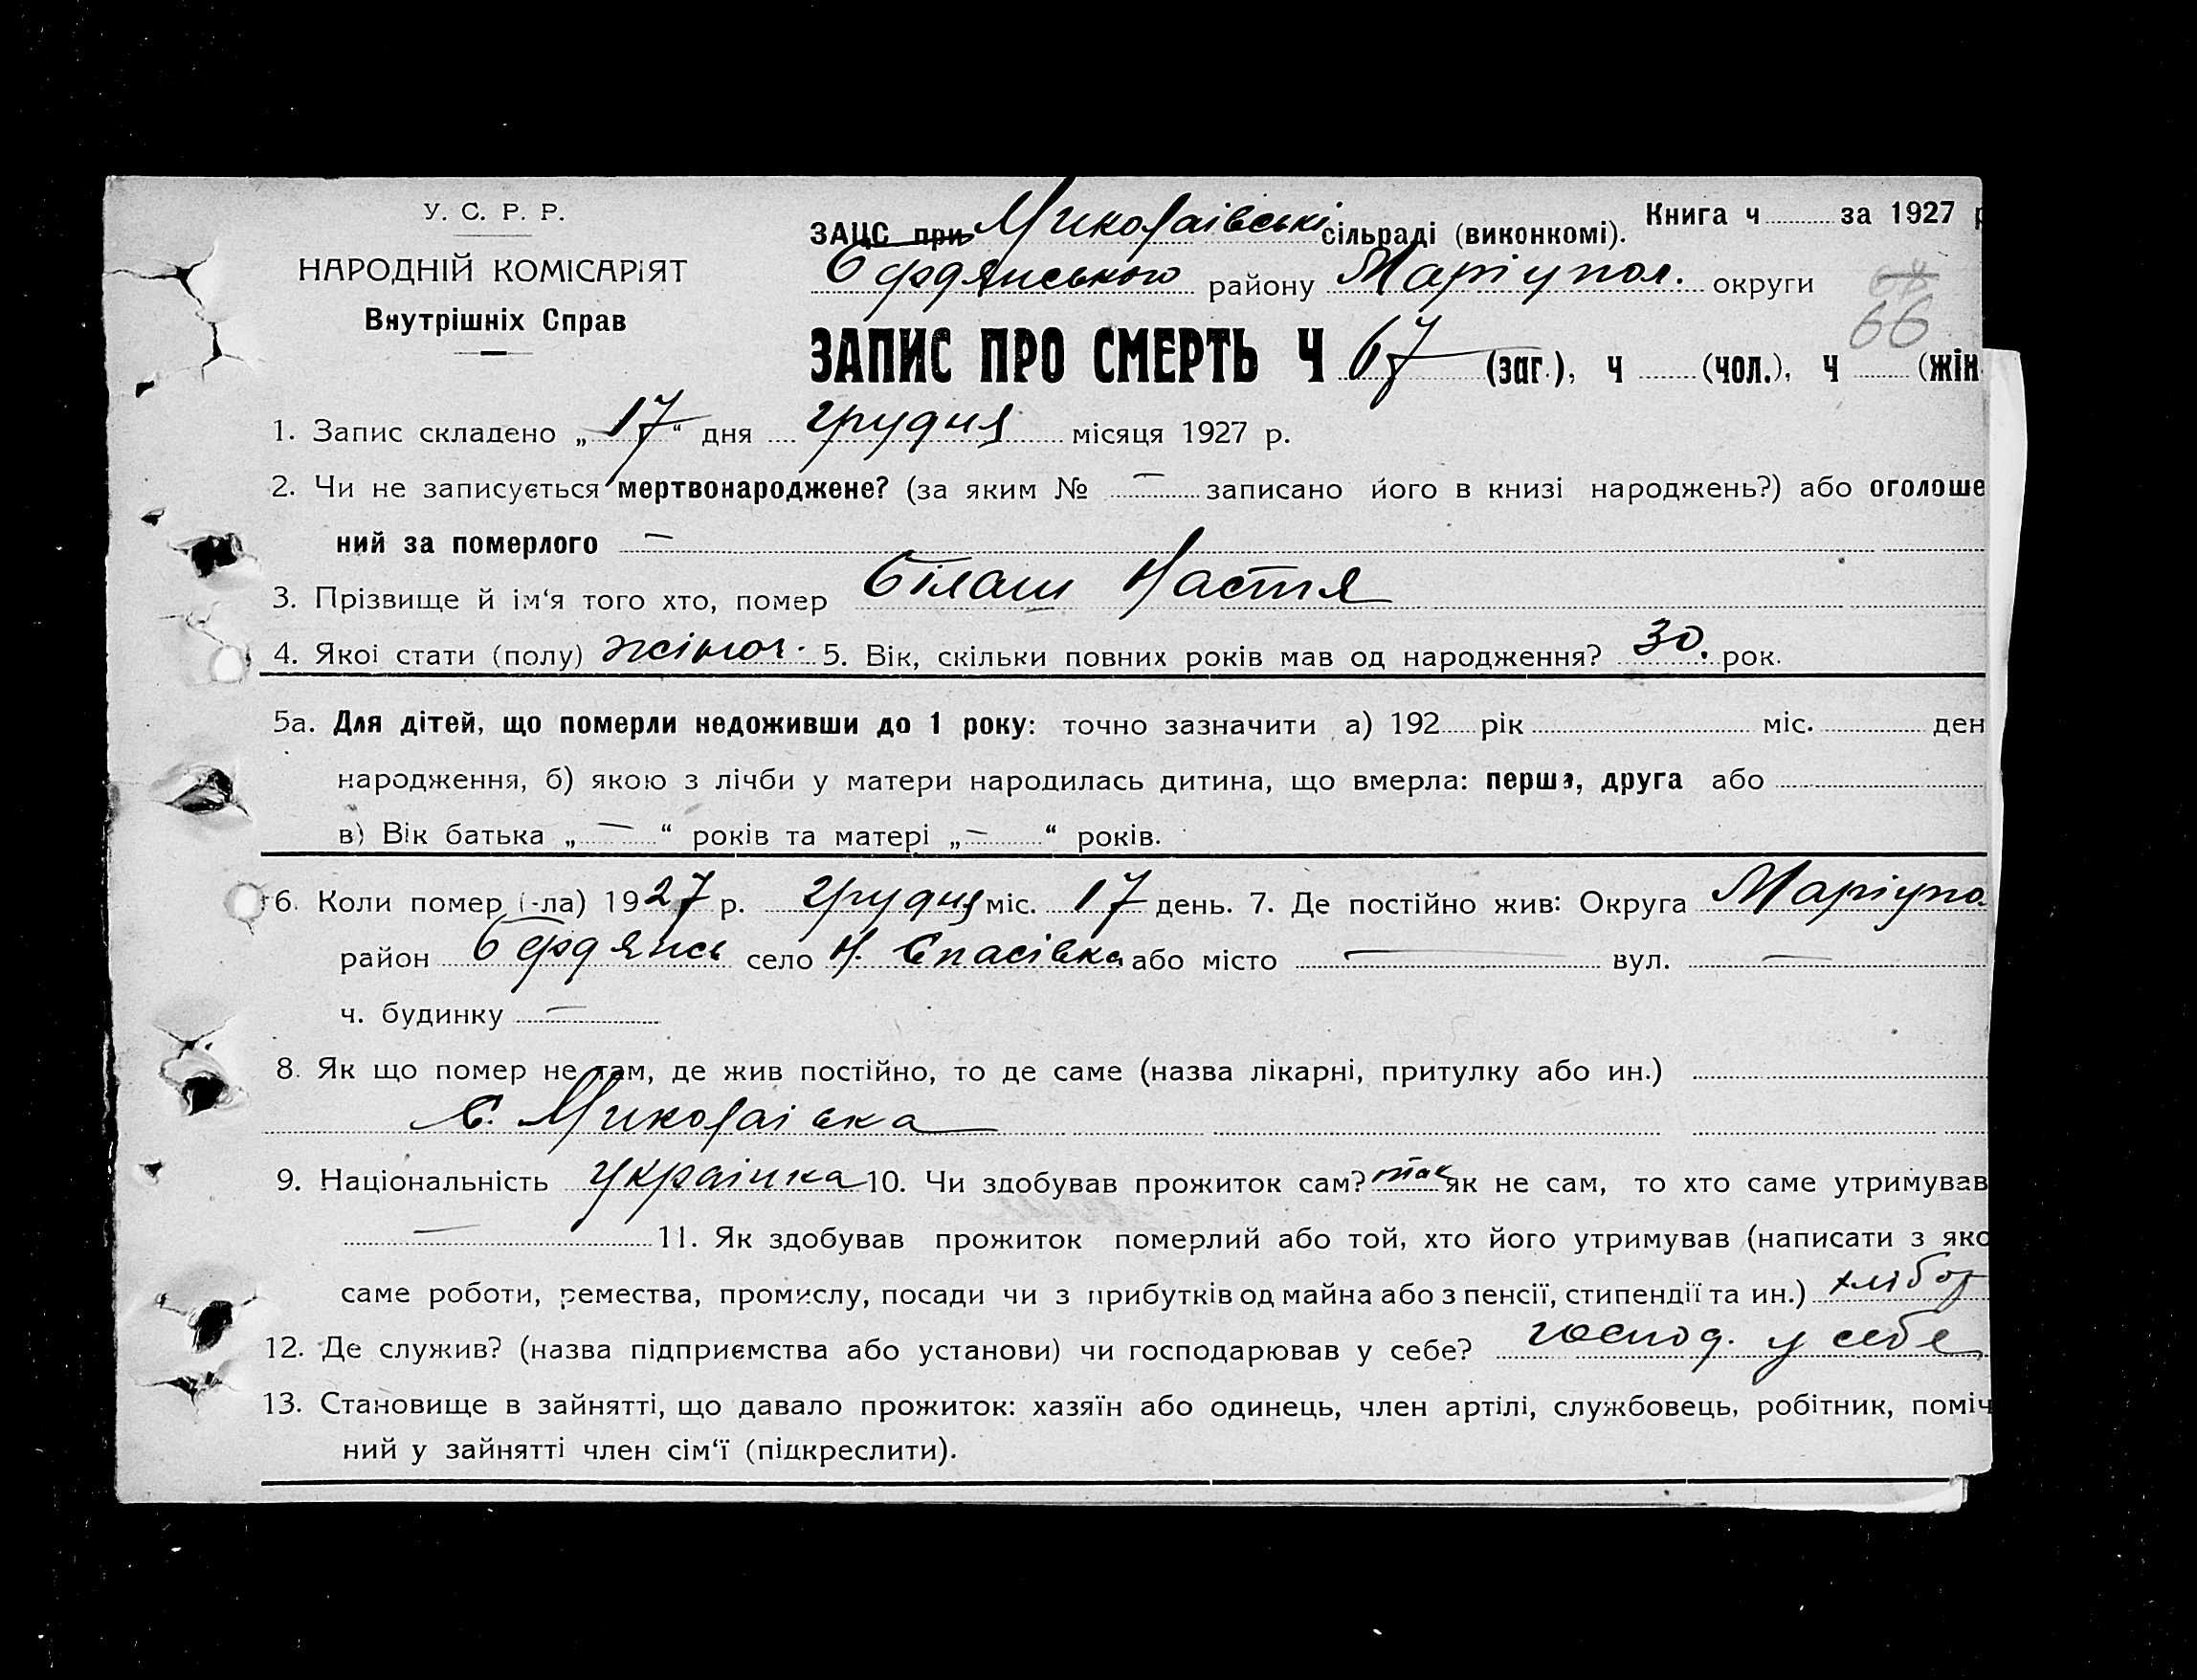 У. С. Р. Р.
НАРОДНІЙ КОМІСАРІЯТ
Внутрішніх Справ
ЗАЦС при Миколаівські сільраді (виконкомі). Книга ч за 1927 р
Бердянського району Маріупол. округи
66
ЗАПИС ПРО СМЕРТЬ Ч 67 (заг.), ч (чол.), ч (жін
1. Запис складено „17“ дня грудня місяця 1927 р.
2. Чи не записується мертвонароджене? (за яким № — записано його в книзі народжень?) або оголоше
ний за померлого —
3. Прізвище й ім‘я того хто, помер Білаш Настя
4. Якоі стати (полу) жіноч. 5. Вік, скільки повних років мав од народження? 30. рок.
5а. Для дітей, що померли недоживши до 1 року: точно зазначити а) 192 рік міс. ден
народження, б) якою з лічби у матери народилась дитина, що вмерла: перша, друга або
в) Вік батька „—“ років та матері „—“ років.
6. Коли помер (-ла) 1927 р. грудня міс. 17 день. 7. Де постійно жив: Округа Маріупо
район Бердянсь село Н. Спасівка або місто — вул. —
ч. будинку —
8. Як що помер не там, де жив постійно, то де саме (назва лікарні, притулку або ин.)
С. Миколаівка
9. Національність Украінка 10. Чи здобував прожиток сам? так як не сам, то хто саме утримував
— 11. Як здобував прожиток померлий або той, хто його утримував (написати з яко
саме роботи, ремества, промислу, посади чи з прибутків од майна або з пенсії, стипендії та ин.) хлібор
12. Де служив? (назва підприємства або установи) чи господарював у себе? господ. у себе
13. Становище в зайнятті, що давало прожиток: хазяїн або одинець, член артілі, службовець, робітник, поміч
ний у зайнятті член сім‘ї (підкреслити).